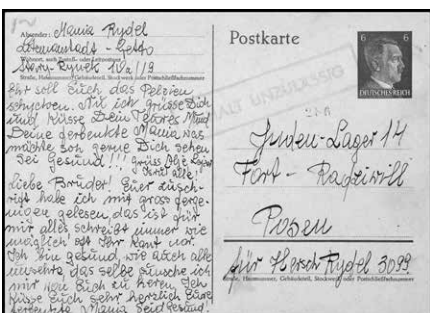 Absender: Mania Rydel
Litzmannstadt - Getto
Wohnort, auch Zustell- oder Leitpostamt
Story-Rynek 10/9
Straße, Hausnummer, Gebäudeteil, Stockwerk oder Postschließfachnummer
Ihr soll Euch das Pelzien
schycken. Nu ich grüsse Dich
und küsse Dein
Deine Mania was
mächte son gerne Dich sehen
Sei Gesund!!! grüss Alle
Liebe Bruder! Euer zusch-
rift habe ich mit gross ferge-
nügen gelesen, das ist für
mir alles schreibt immer wie
möglich ist Ihr kant nor.
Ich bin gesund, wie auch alle
unsehre, das selbe wunsche ich
mir von Euch zu heren. Ich
küsse Euch sehr herzlich Eure
Mania Seid Gesund.
Postkarte
6 6
DEUTSCHES REICH
INHALT UNZULÄSSIG
Juden-Lager 14
Fort - Radziwill
Posen
für Hersch Rydel 3099
Straße, Hausnummer, Gebäudeteil, Stockwerk oder Postschließfachnummer